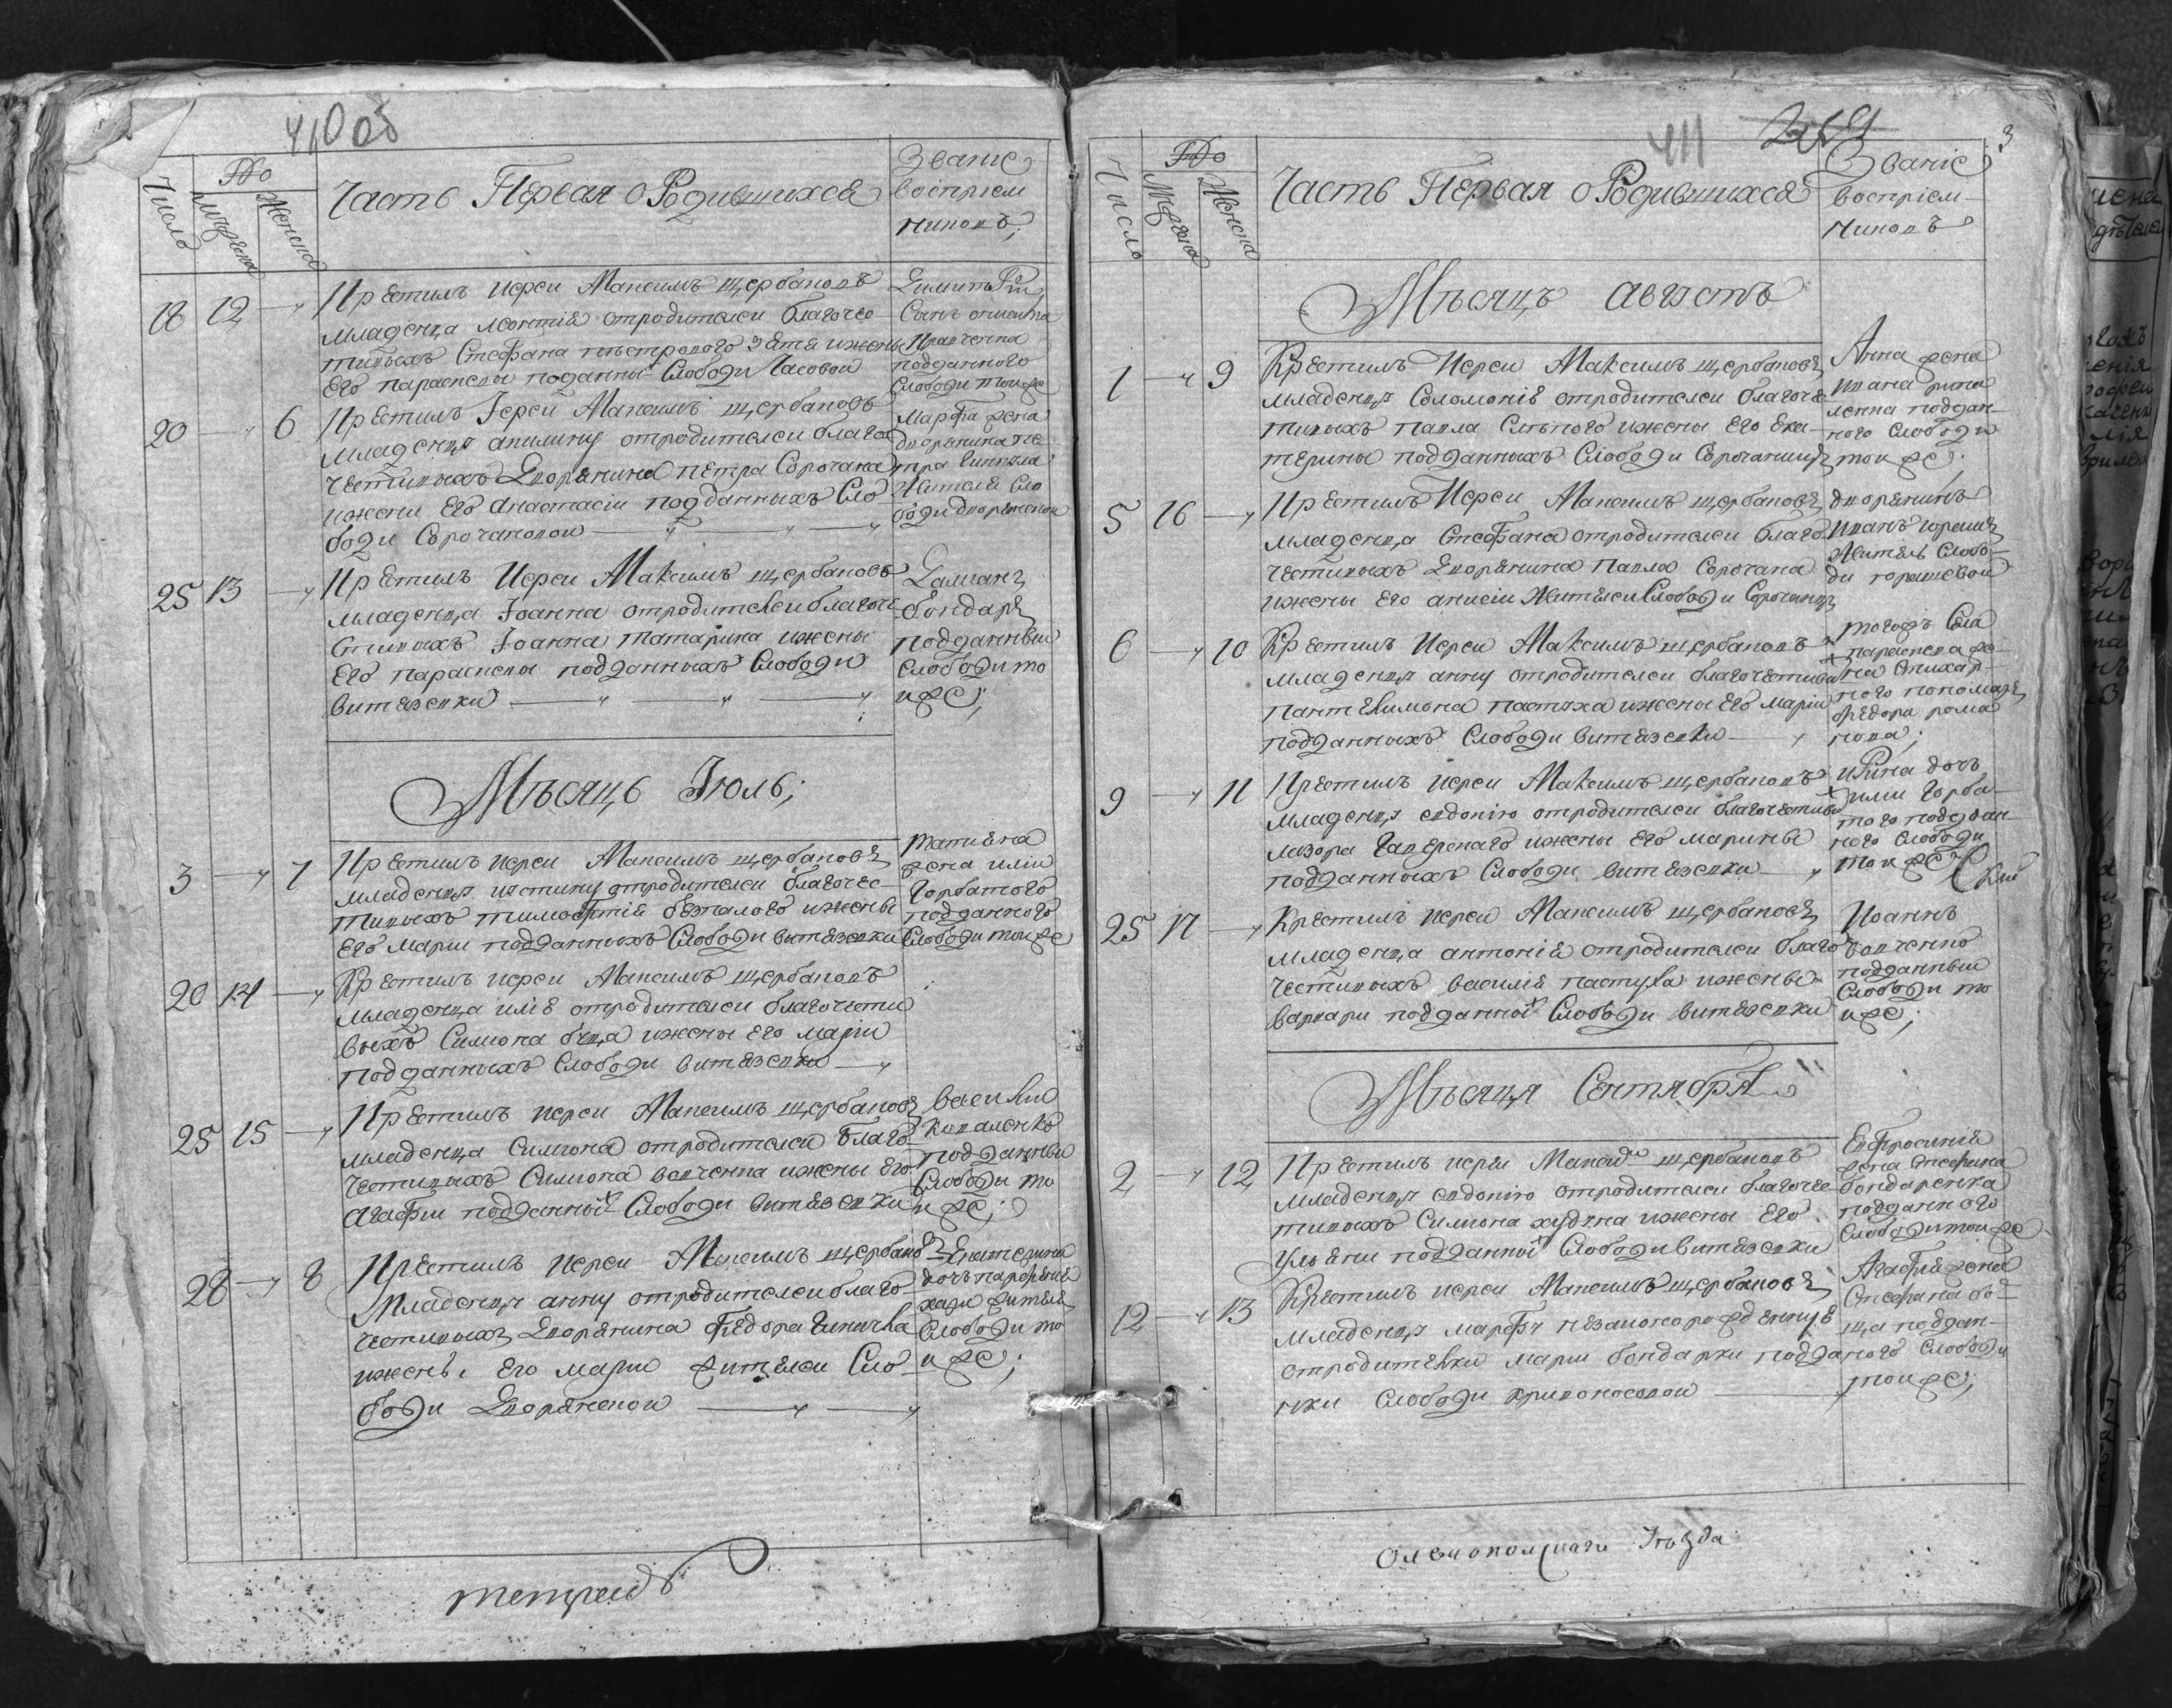 410
Число
Муж:
Женска
Часть Первая о Родившихся
Званіе
воспріем
никовъ;
18 12 —
Крестилъ иереи Максимъ щербаковъ
младенца леонтія отродителеи благочес
тивыхъ Стефана пестрового зятя ижены
Его параскевы поданныхъ Слободи Часовои
Димитрій
подданного
Слободи тоиже
20 — 6
Крестилъ Іереи Максимъ щербаковъ
младенца акилину отродителеи благо
честивыхъ Дворянина петра Сорочана
ижени Его анастасіи подданныхъ Сло
боди Сорочановои
Марфа жена
дворянина пе
тра
Жителя сло
боди дворянскои
25 13 —
Крестилъ Иереи Максимъ щербаковъ
младенца Іоанна отродителеи благоче
стивыхъ Іоанна татарина ижены
Его параскевы подданныхъ Слободи
витязевки
Дамианъ
бондарь
подданныи
слободи то
иже;
Мѣсяцъ Іюль;
3 — 7
Крестилъ иереи Максимъ щербаковъ
младенца иустину отродителеи благочес
тивыхъ тимофтія безпалого ижены
Его марии подданныхъ Слободи витязевки
татіяна
жена илии
Горбатого
подданного
Слободи тоиже
20 14 —
Крестилъ иереи Максимъ щербаковъ
младенца илія отродителеи благочести
выхъ Симиона ижены Его марии
подданныхъ Слободи витязевки
25 15 —
Крестилъ иереи Максимъ щербаковъ
младенца Симиона отродителеи благо
честивыхъ Симиона вовченка ижены Его
агафии подданныхъ Слободи витязевки
васили
коваленко
подданныи
Слободи то
иже;
28 — 8
Крестилъ иереи Максимъ щербаковъ
младенца анну отродителеи благо
честивыхъ Дворянина Федора
ижены Его марии жителеи Сло
боди Дворянскои
Екатерина
дочь парфения
жителя
Слободи то
иже;
411
3
Число
Женска
Часть Первая о Родившихся
Званіе
воспріем
никовъ
Мѣсяцъ августъ
1 — 9
Крестилъ Иереи Максимъ щербаковъ
младенца Соломонія отродителеи благоче
тивыхъ павла Слѣпого ижены Его Ека
терины подданныхъ Слободи
Анна жена
ивана
ленка поддан
ного Слободи
тоиже;
5 16 —
Крестилъ Иереи Максимъ щербаковъ
младенца Стефана отродителеи благо
честивыхъ Дворянина павла Сорочана
ижены Его анисіи Жителеи Слободи
дворянинъ
иванъ
Житель Слобо
ди
6 — 10
Крестилъ Иереи Максимъ щербаковъ
младенца анну отродителеи благочестивых
пантелимона пастуха ижены Его маріи
подданныхъ Слободи витязевки
тогожъ Села
параскева же
на Стихар
ного пономаря
Федора рома
нова;
9 — 11
Крестилъ иереи Максимъ щербаковъ
младенца евдокию отродителеи благочестивых
лазора ижены Его марины
подданныхъ Слободи витязевки
ирина дочь
илии Горба
того поддан
ного Слободи
тоиже
25 17 —
Крестилъ иереи Максимъ щербаковъ
младенца антонія отродителеи благо
честивыхъ василія пастуха ижены
варвари подданныхъ Слободи витязевки
Иоаннъ
вовченко
подданныи
Слободи то
иже;
Мѣсяца Сентября
2 — 12
Крестилъ иереи Максимъ щербаковъ
младенца евдокию отродителеи благоче
тивыхъ Симиона ижены Его
Ульяни подданныхъ Слободи витязевки
Евфросинія
жена
бондаренка
подданного
Слободи тоиже
12 — 13
Крестилъ иереи Максимъ щербаковъ
младенца марфу незаконорожденную
отродителки марии бондарки поддан
нки Слободи кривоносовои
Агафія жена
Стефана
поддан
ного Слободи
тоиже;
Уѣзда